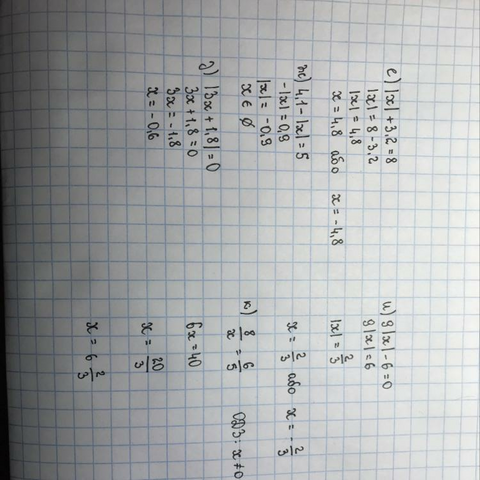 е) |x| + 3,2 = 8
|x| = 8 - 3,2
|x| = 4,8
x = 4,8 або x = -4,8
ж) 4,1 - |x| = 5
-|x| = 0,9
|x| = -0,9
x ∈ ∅
з) |3x + 1,8| = 0
3x + 1,8 = 0
3x = -1,8
x = -0,6
и) 9|x| - 6 = 0
9|x| = 6
|x| = 2/3
x = 2/3 або x = -2/3
к) 8/x = 6/5 ОДЗ: x ≠ 0
6x = 40
x = 20/3
x = 6 2/3